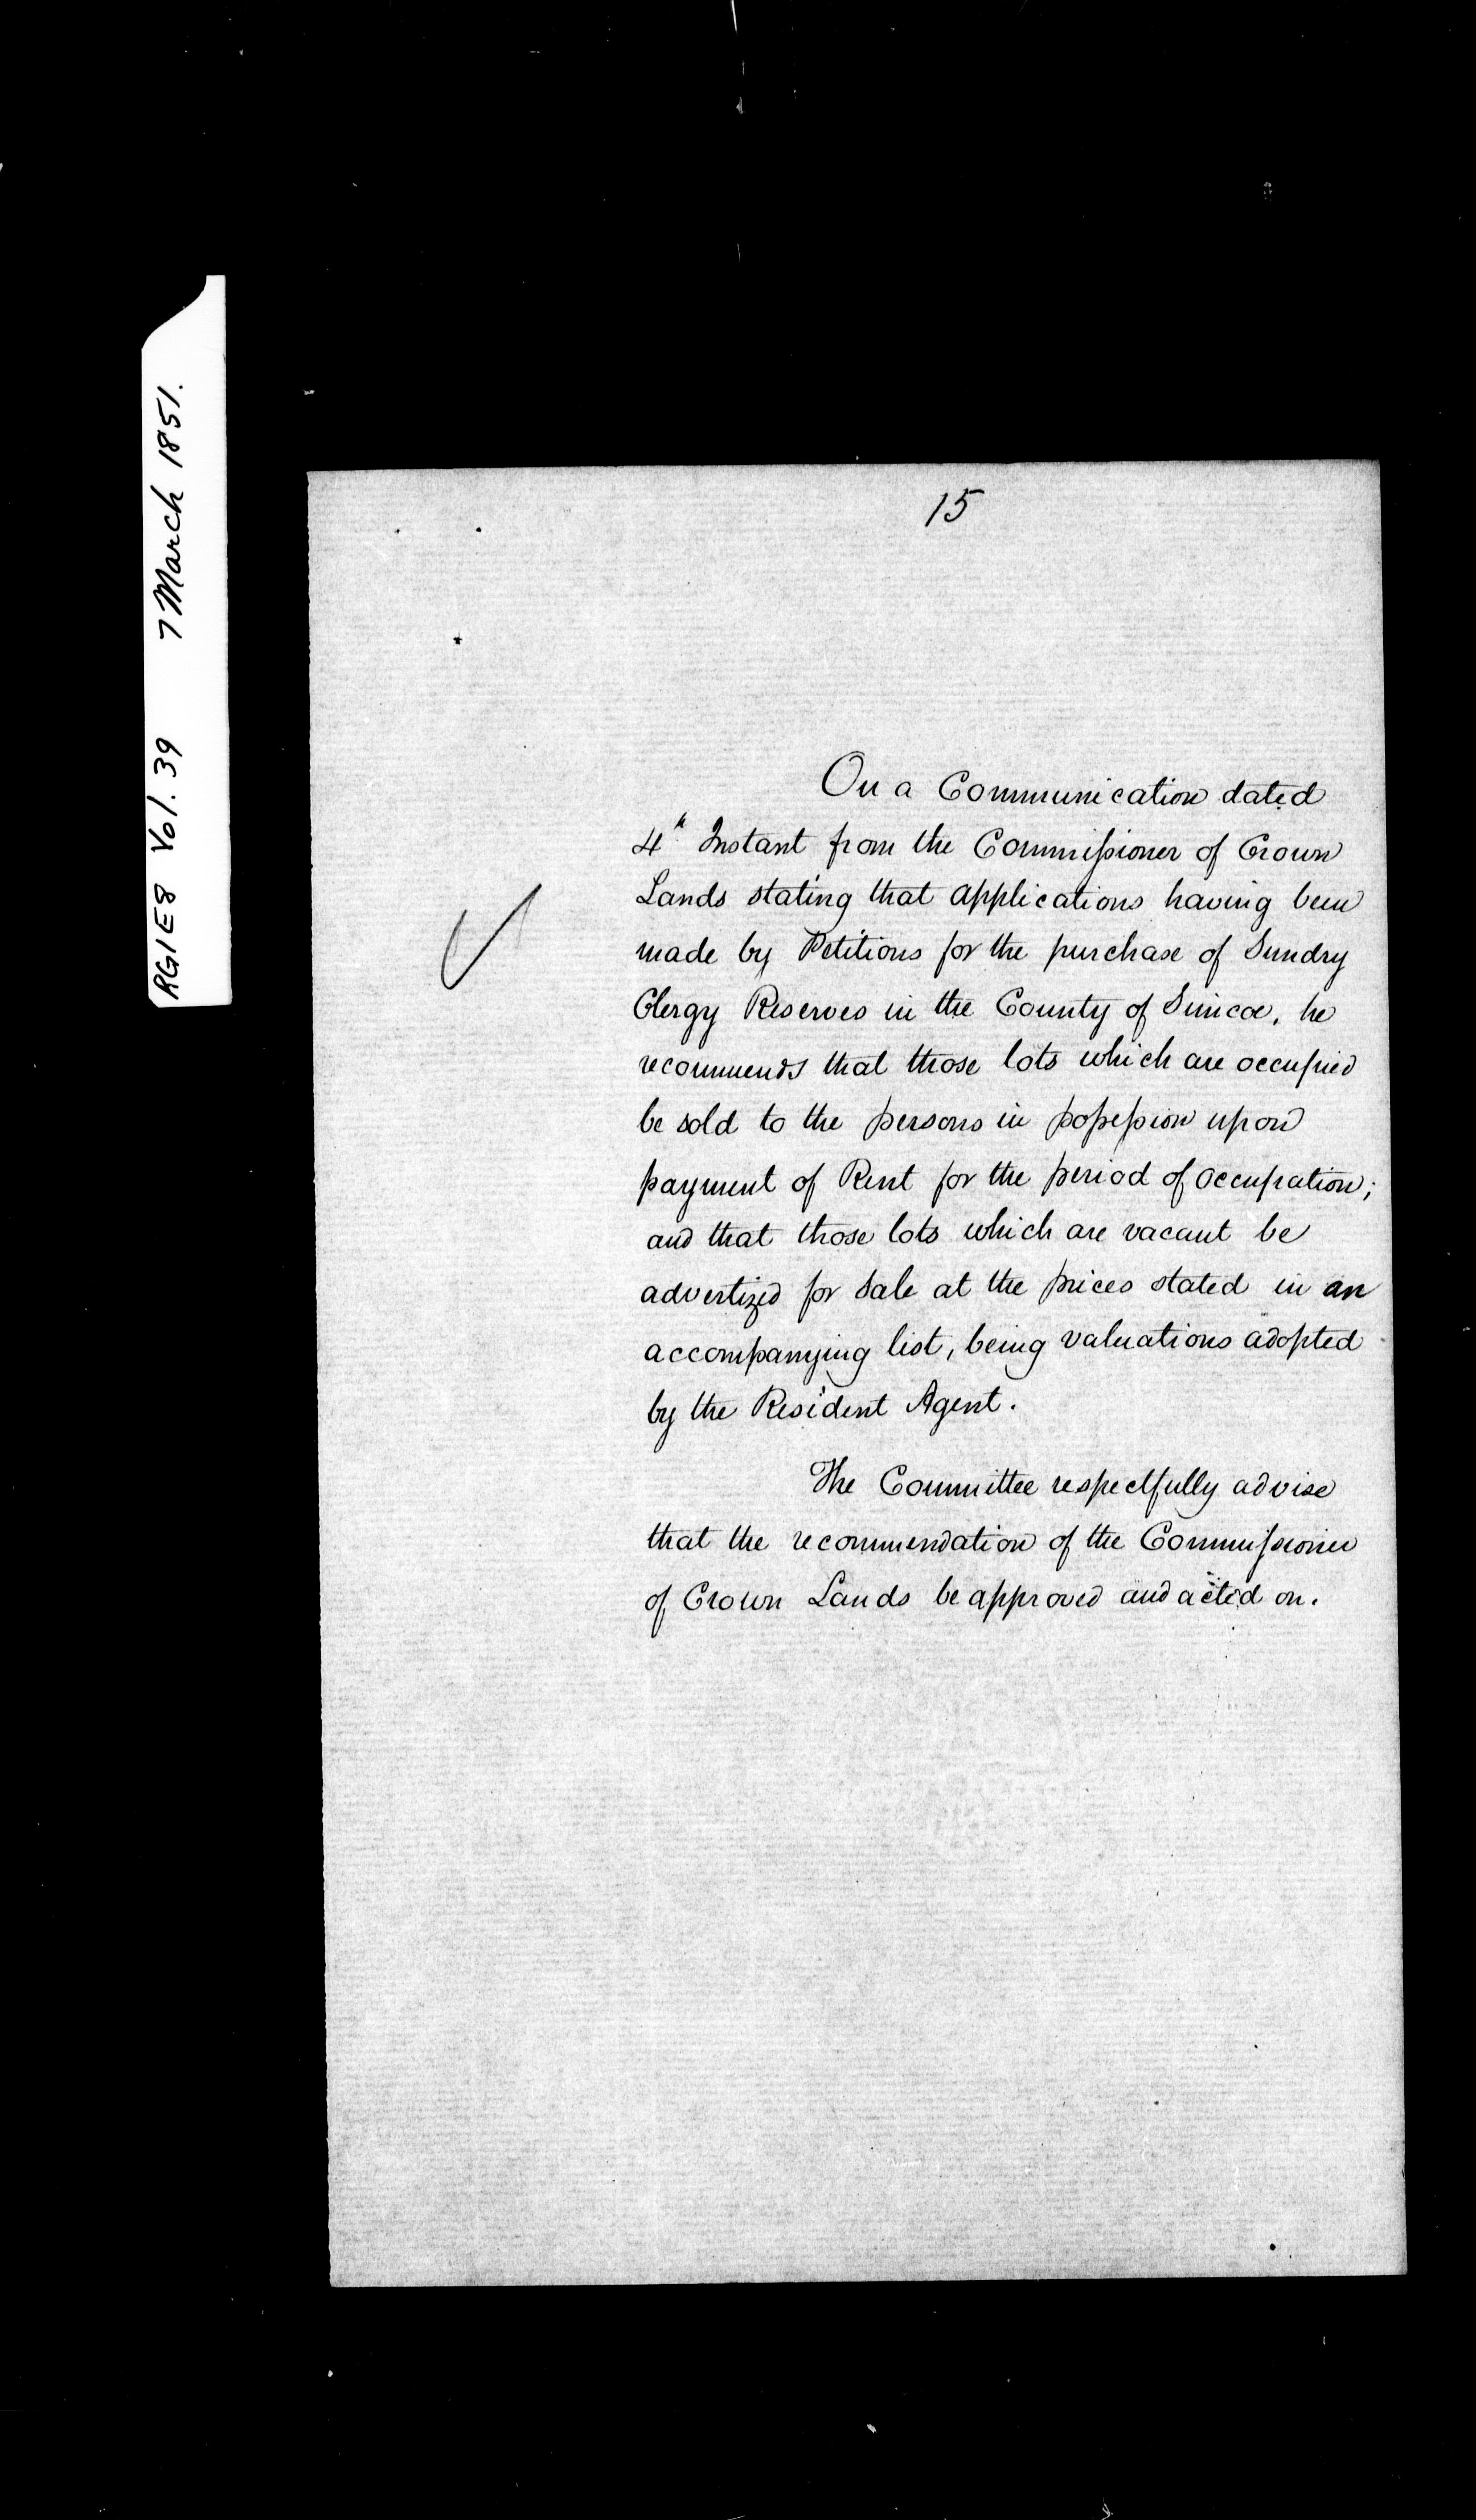 RG1E8 Vol. 39 7 March 1851.
15
On a Communication dated
4th Instant from the Commissioner of Crown
Lands stating that applications having been
made by Petitions for the purchase of Sundry
Clergy Reserves in the County of Simcoe, he
recommends that those lots which are occupied
be sold to the persons in possession upon
payment of Rent for the period of Occupation;
and that those lots which are vacant be
advertized for Sale at the prices stated in an
accompanying list, being valuations adopted
by the Resident Agent.
The Committee respectfully advise
that the recommendation of the Commissioner
of Crown Lands be approved and acted on.